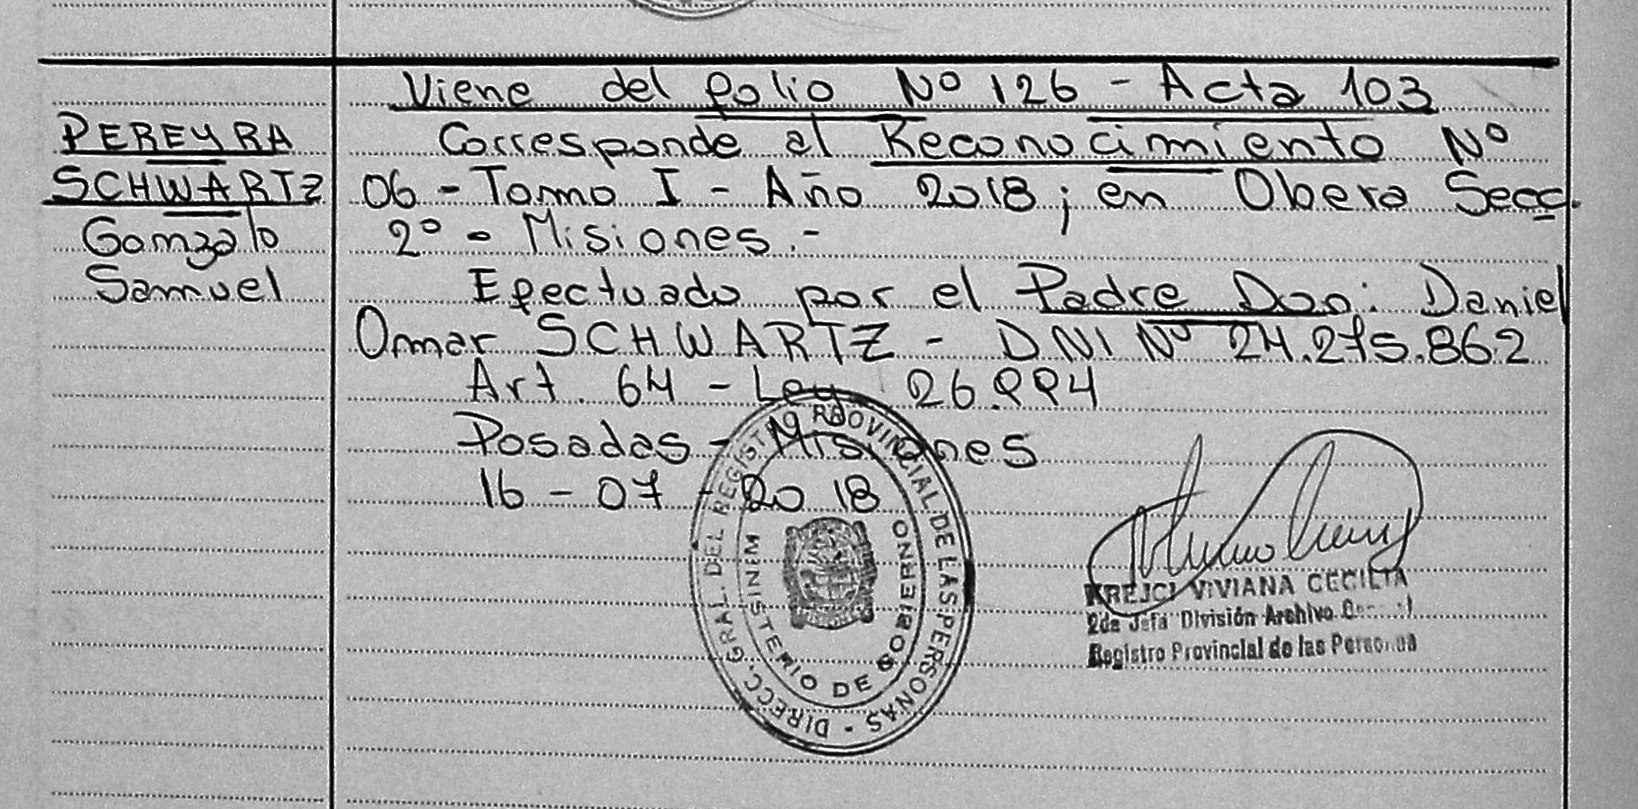 Viene del folio Nº 126 - Acta 103
PEREYRA
SCHWARTZ
Gonzalo
Samuel
Corresponde al Reconocimiento Nº
06 - Tomo I - Año 2018; en Obera Secc.
2º - Misiones.-
Efectuado por el Padre Don: Daniel
Omar SCHWARTZ - DNI Nº 24.275.862
Art. 64 - Ley 26.994
Posadas - Misiones
16 - 07 - 2018
DIRECC. GRAL. DEL REGISTRO PROVINCIAL DE LAS PERSONAS -
MINISTERIO DE GOBIERNO
KREJCI VIVIANA CECILIA
2da Jefa División Archivo
Registro Provincial de las Personas